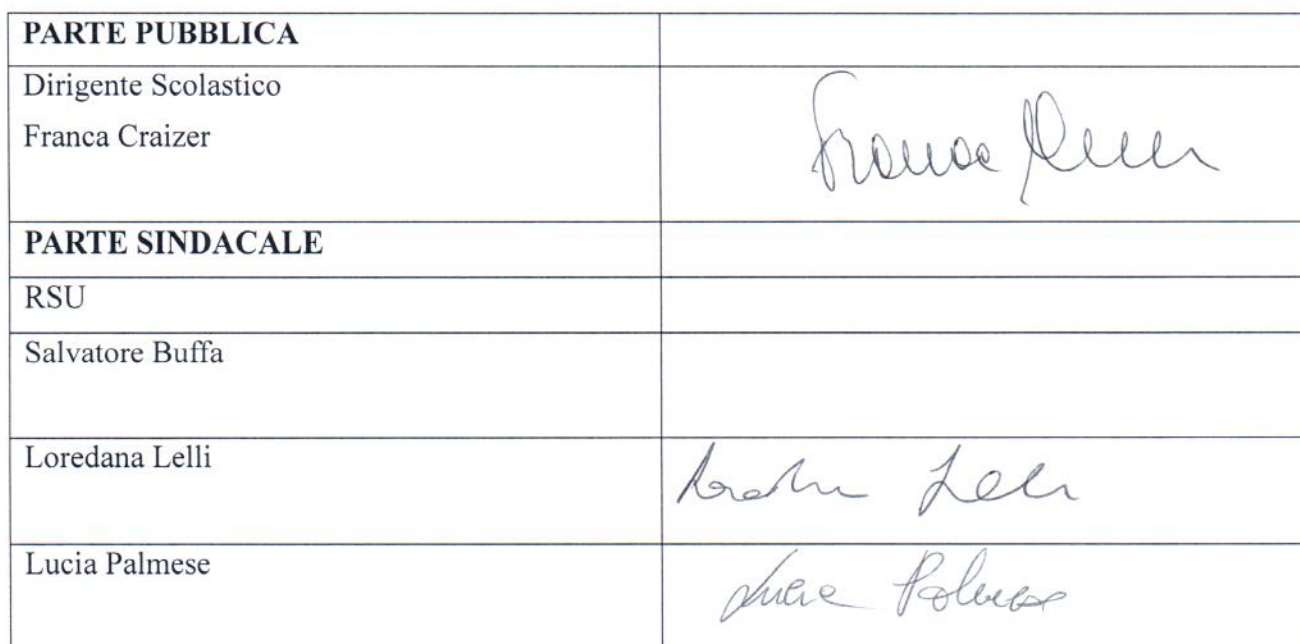 PARTE PUBBLICA
Dirigente Scolastico
Franca Craizer
PARTE SINDACALE
RSU
Salvatore Buffa
Loredana Lelli
Lucia Palmese
Lucia Palmese